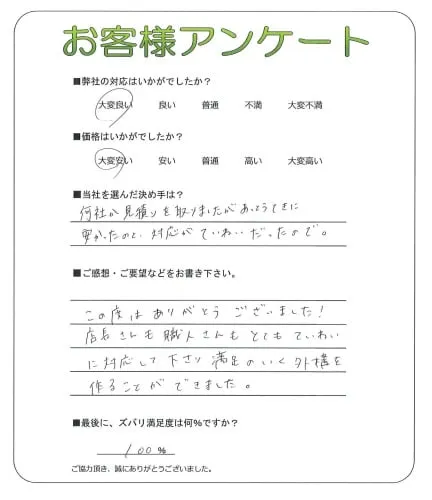 お客様アンケート
■弊社の対応はいかがでしたか？
大変良い 良い 普通 不満 大変不満
■価格はいかがでしたか？
大変安い 安い 普通 高い 大変高い
■当社を選んだ決め手は？
何社か見積りを取りましたがあっとうてきに
安かったのと、対応がていねいだったので。
■ご感想・ご要望などをお書き下さい。
この度はありがとうございました！
店長さんも職人さんもとてもていねい
に対応して下さり満足のいく外構を
作ることができました。
■最後に、ズバリ満足度は何％ですか？
100％
ご協力頂き、誠にありがとうございました。